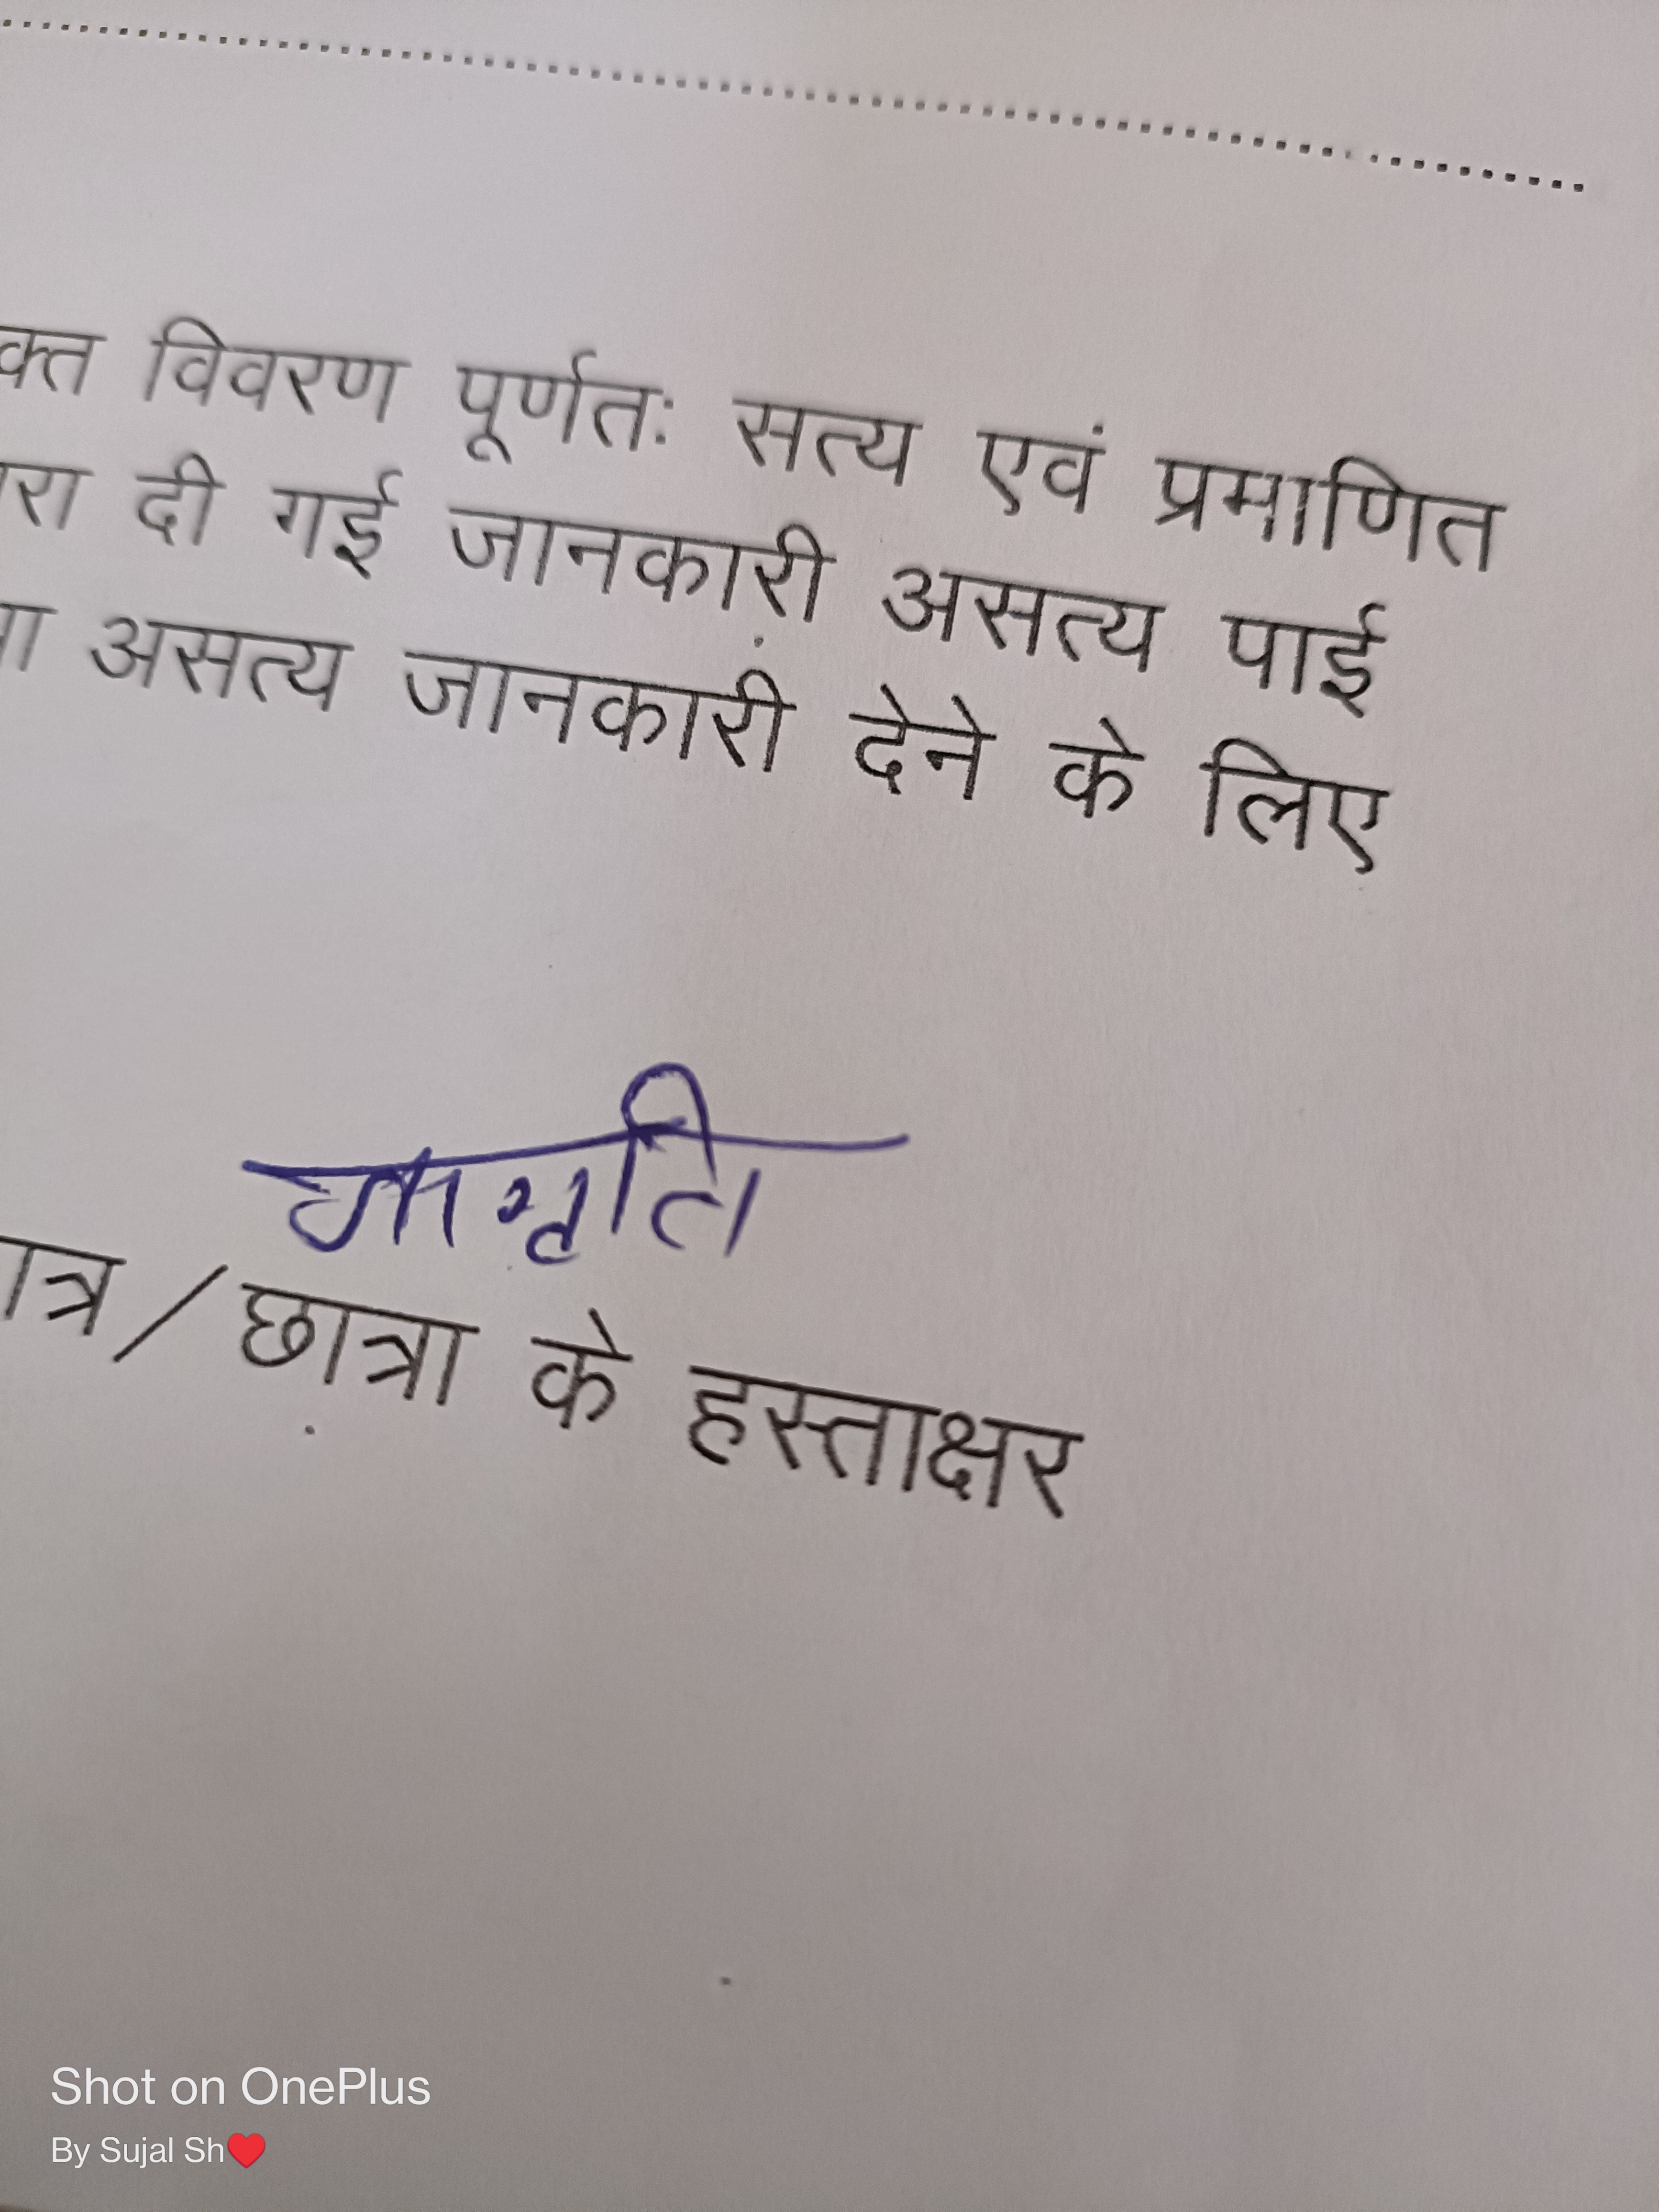 क्त विवरण पूर्णतः सत्य एवं प्रमाणित
रा दी गई जानकारी असत्य पाई
ा असत्य जानकारी देने के लिए
जागृति
ात्र / छात्रा के हस्ताक्षर
Shot on OnePlus
By Sujal Sh❤️